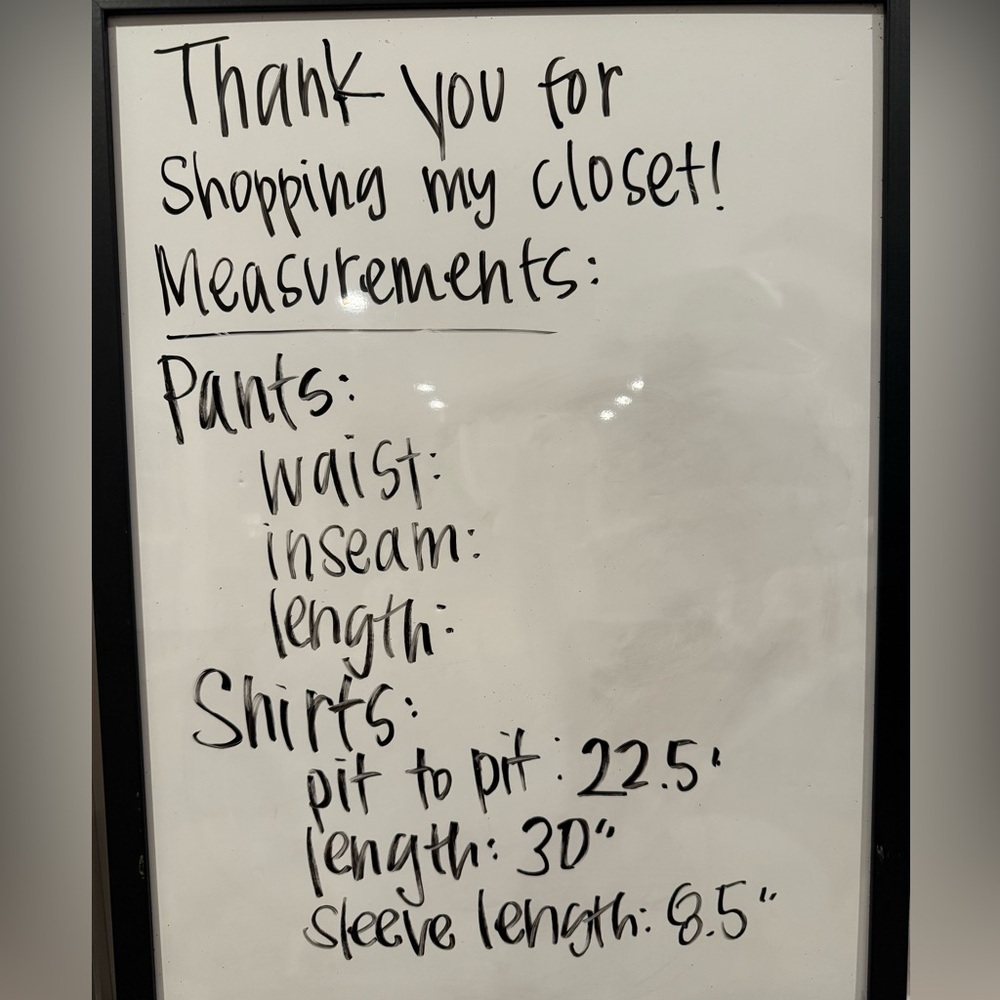 Thank you for
Shopping my closet!
Measurements:
Pants:
waist:
inseam:
length:
Shirts:
pit to pit: 22.5'
length: 30"
sleeve length: 8.5"